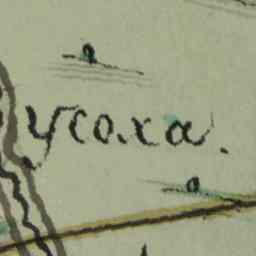 усоха.